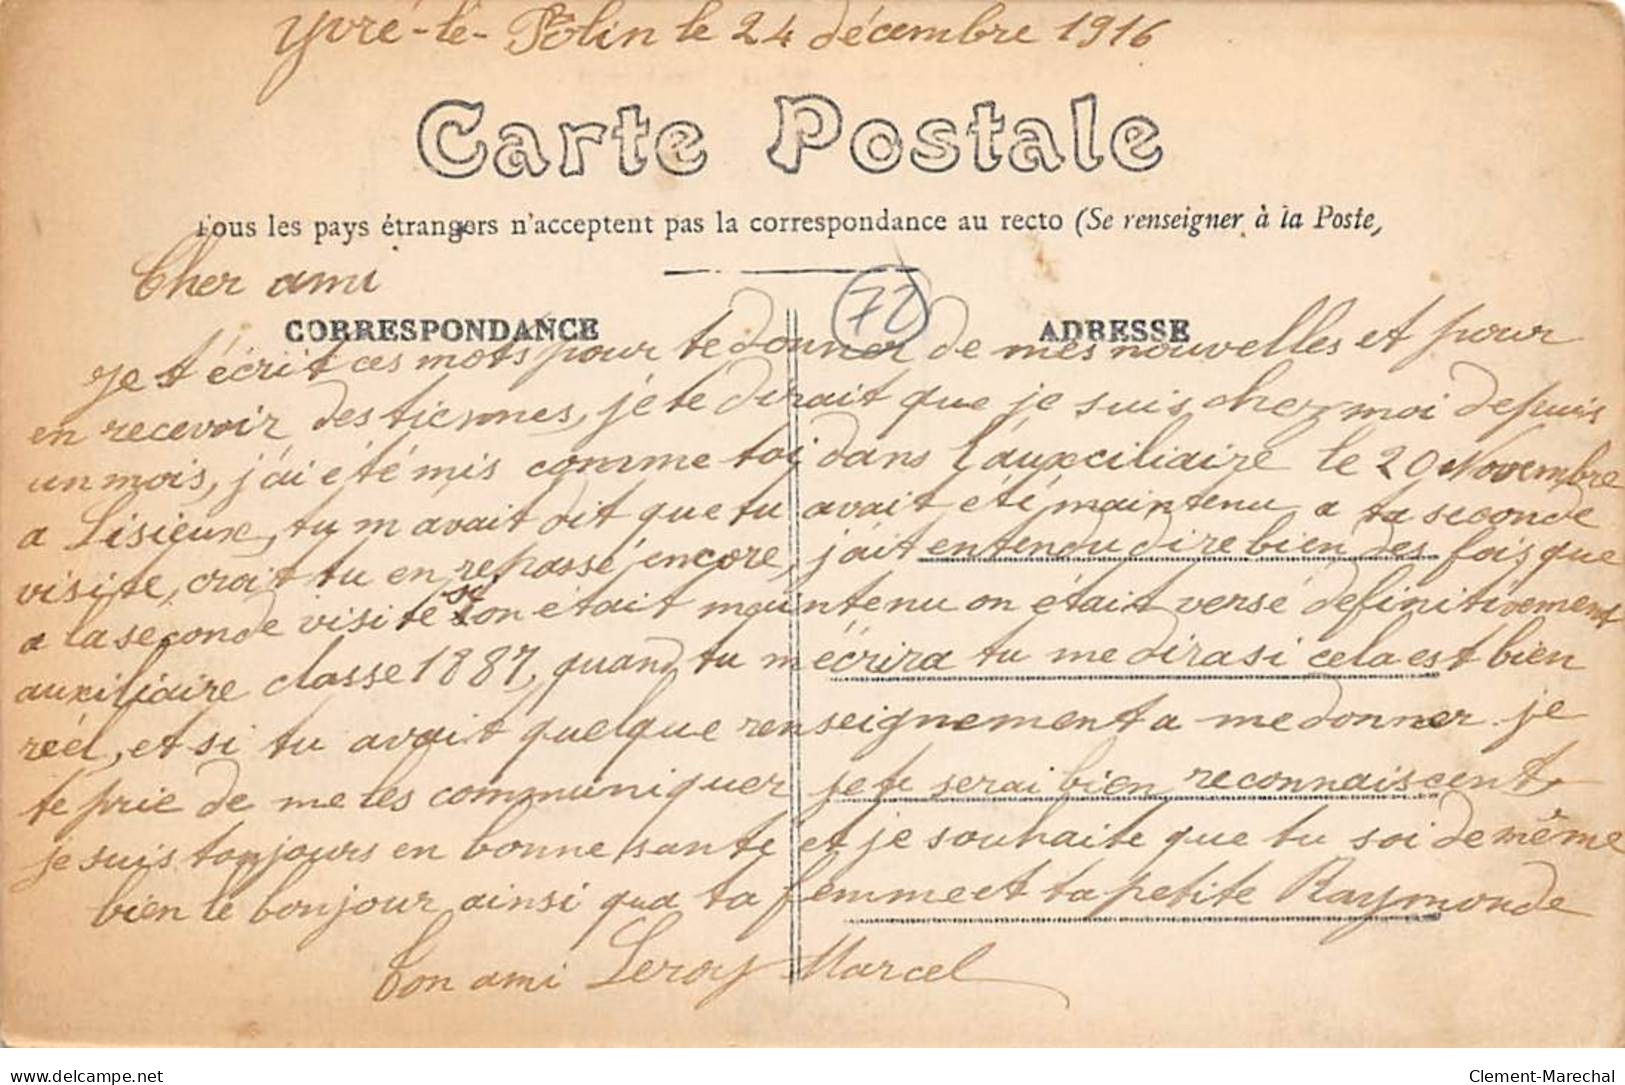 Yvré-le-Pôlin le 24 décembre 1916
Carte Postale
Tous les pays étrangers n'acceptent pas la correspondance au recto (Se renseigner à la Poste,
Cher ami
72
CORRESPONDANCE ADRESSE
Je t'écrit ces mots pour te donner de mes nouvelles et pour
en recevoir des tiennes, je te dirait que je suis chez moi depuis
un mois, j'ai été mis comme toi dans l'auxciliaire le 20 Novembre
a Lisieux, tu m avait dit que tu avait été maintenu a ta seconde
visite, croit tu en repassé encore, j'ait entendu dire bien des fois que
a la seconde visite si on était maintenu on était versé définitivement
auxiliaire classe 1887, quand tu m écrira tu me dira si cela est bien
réel, et si tu avait quelque renseignement a me donner je
te prie de me les communiquer je te serai bien reconnaiscent,
je suis toujours en bonne santé et je souhaite que tu soi de même
bien le bonjour ainsi qua ta femme et ta petite Raymonde
ton ami Leroy Marcel
Clement-Marechal
www.delcampe.net